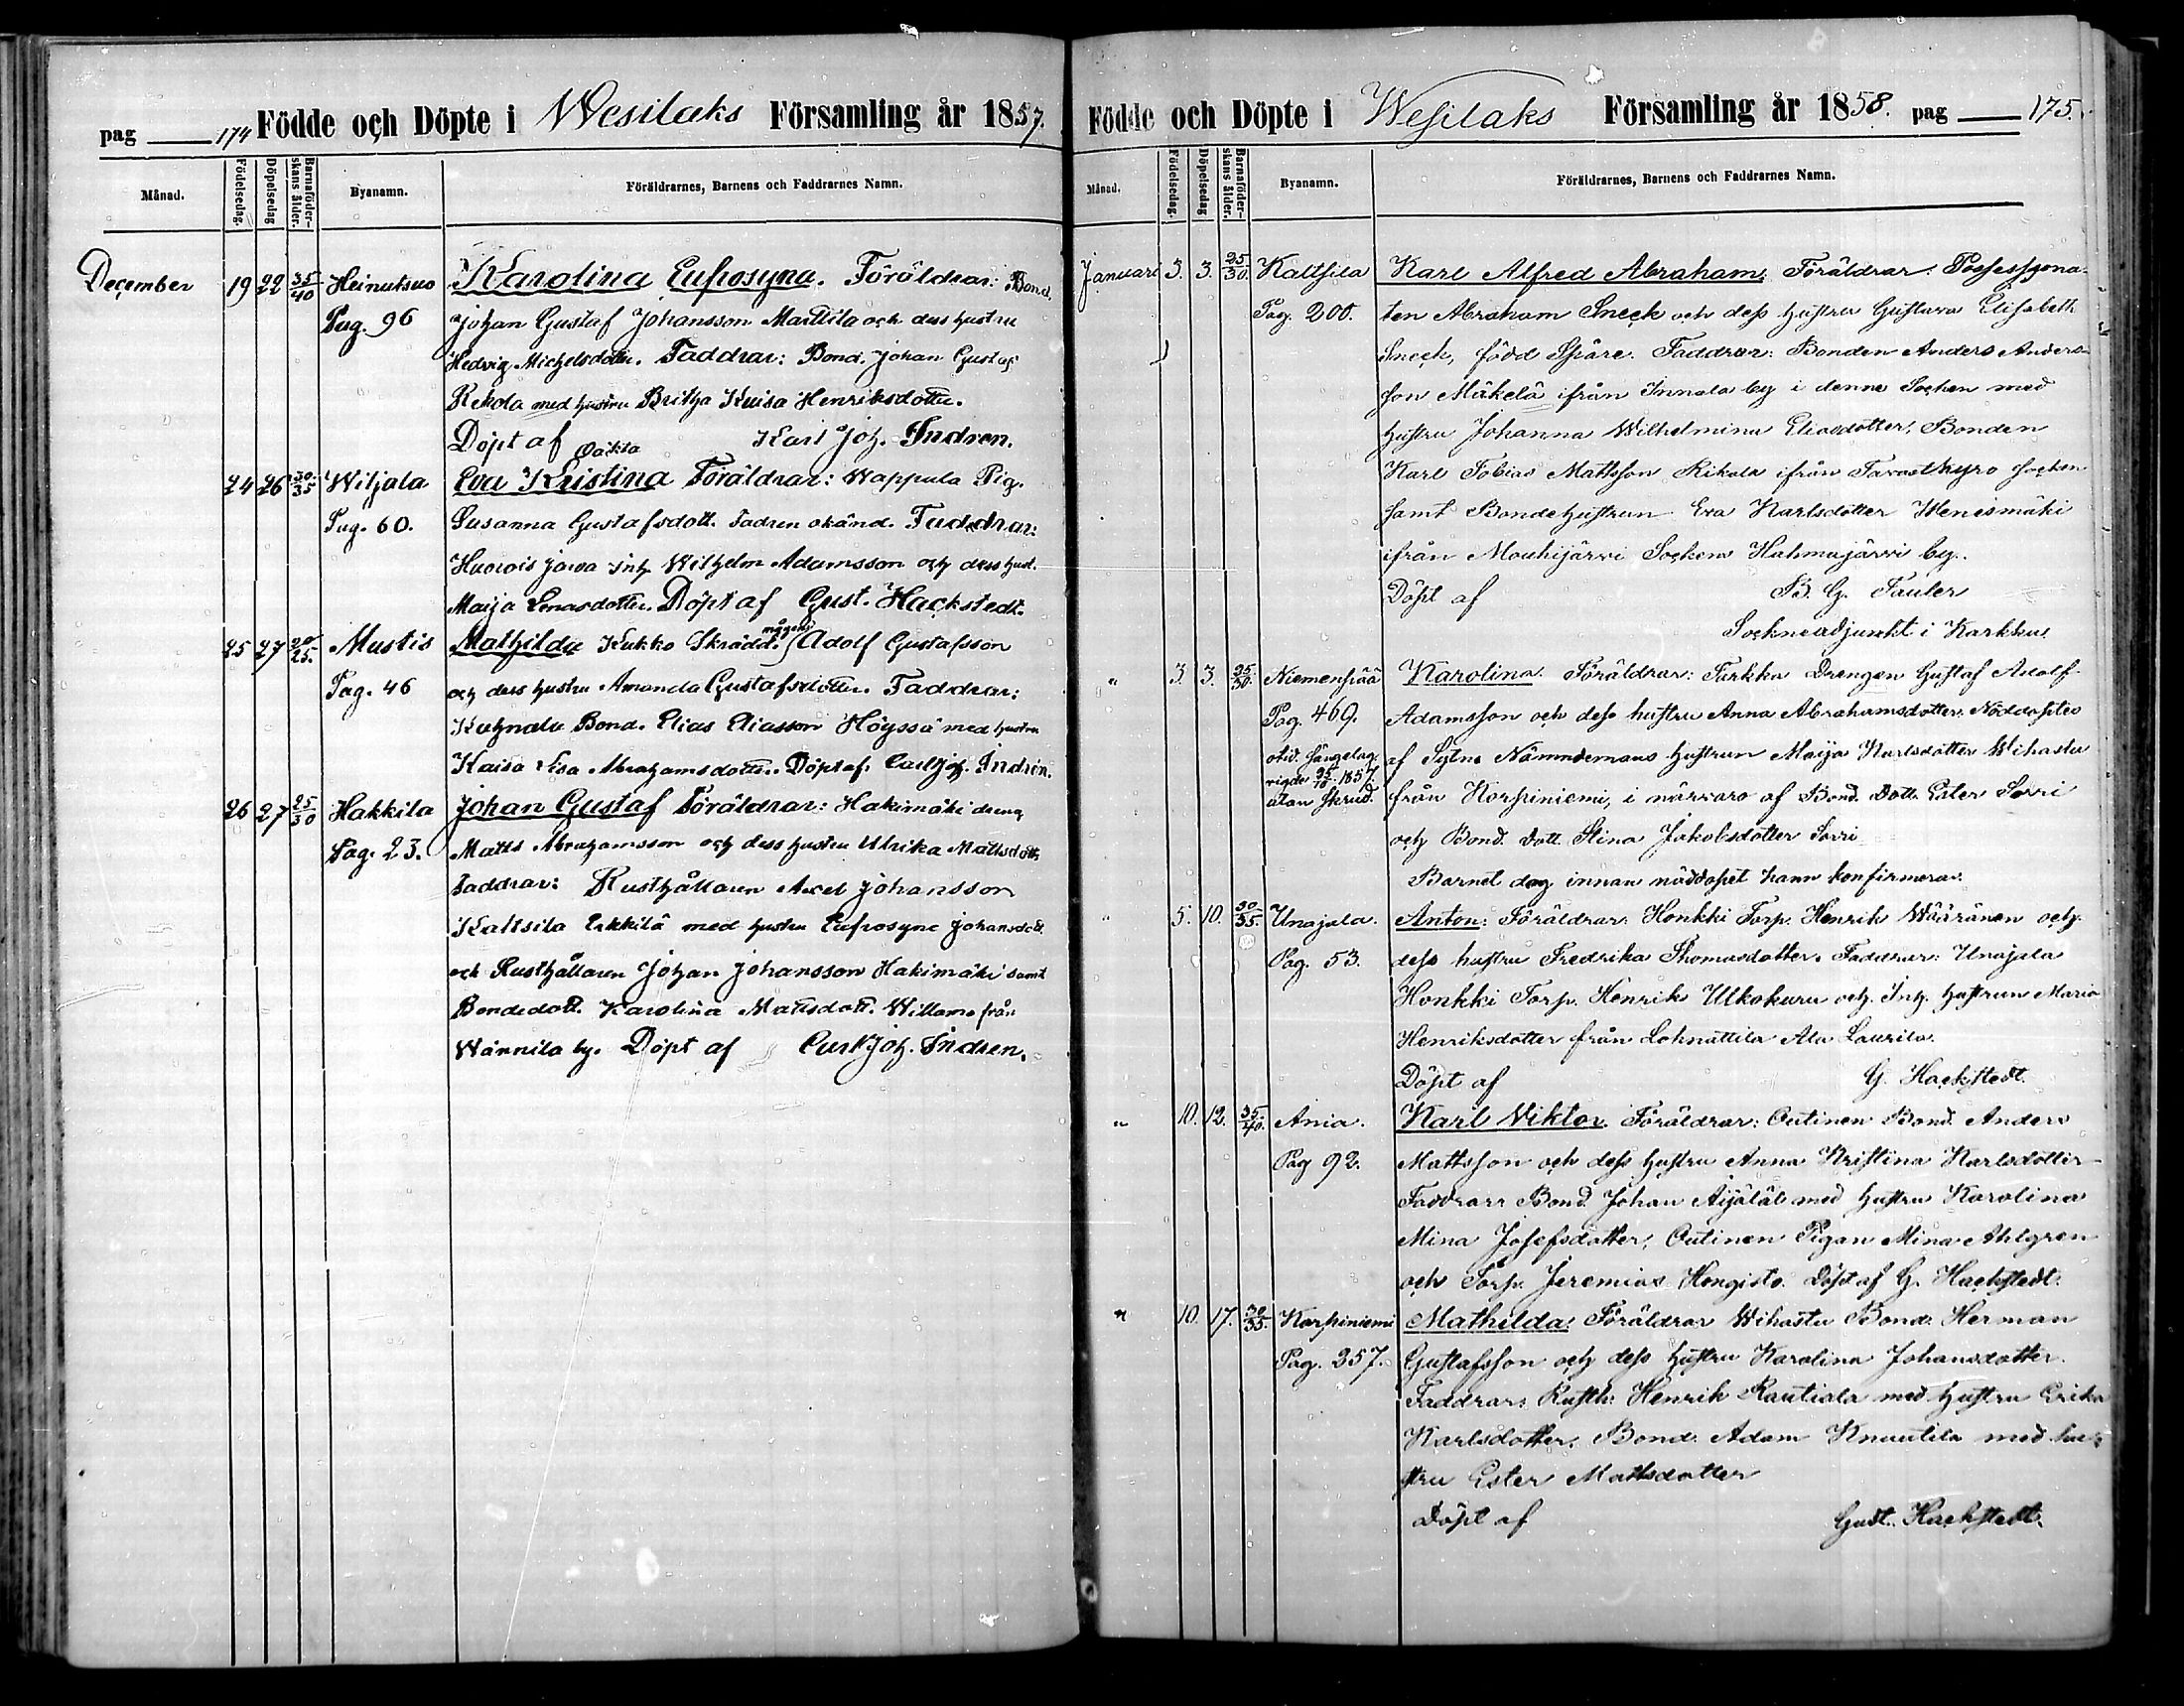 pag 174 Födde och Döpte i Wesilaks Församling år 1857.
Månad. Födelsedag. Döpelsedag Barnaföder-skans ålder. Byanamn. Föräldrarnes, Barnens och Faddrarnes Namn.
December 19 22 35/40 Heinutsuo Karolina Eufrosyna. Föräldrar: Bond.
Pag. 96 Johan Gustaf Johansson Marttila och dess hustru
Hedvig Michelsdotter. Faddrar: Bond. Johan Gustaf
Rekola med hustru Britha Kaisa Henriksdotter.
Döpt af Carl Joh. Indren.
Oäkta
24 26 30/35 Wiljala Eva Kristina Föräldrar: Wappula Pig.
Pag. 60. Susanna Gustafsdott. Fadren okänd. Faddrar:
Huovois jorva Inh Wilhelm Adamsson och dess hust.
Maija Enasdotter. Döpt af Gust. Hackstedt.
25 27 20/25. Mustis Mathilda Kukko Skrädd. mågen Adolf Gustafsson
Pag. 46 och dess hustru Amanda Gustafsdotter. Faddrar:
Kuhnala Bond. Elias Eliasson Höyssä med hustru
Kaisa Lisa Abrahamsdotter. Döpt af Carl Joh. Indrén.
26 27 25/30 Hakkila Johan Gustaf Föräldrar: Hakimäki dreng
Pag. 23. Matts Abrahamsson och dess hustru Ulrika Mattsdott.
Faddrar: Rusthållaren Axel Johansson
Kaltsila Erkkilä med hustru Eufrosyne Johansdott.
och Rusthållaren Johan Johansson Hakimäki samt
Bondedott. Karolina Mattsdott. Willamo från
Wännila by. Döpt af Carl Joh. Indren.
Födde och Döpte i Wesilaks Församling år 1858. pag 175.
Månad. Födelsedag. Döpelsedag Barnaföder-skans ålder. Byanamn. Föräldrarnes, Barnens och Faddrarnes Namn.
Januari 3. 3. 25/30. Kaltsila Karl Alfred Abraham. Föräldrar: Possessiona-
Pag. 200. ten Abraham Sneck och dess hustru Gustava Elisabeth
Sneck, född Spåre. Faddrar: Bonden Anders Anders-
son Mäkelä ifrån Innala by i denna Socken med
hustru Johanna Wilhelmina Eliasdotter, Bonden
Karl Tobias Mattsson Rikala ifrån Tavastkyro socken
samt Bondehustrun Eva Karlsdotter Henismäki
ifrån Mouhijärvi Socken Hahmajärvi by.
Döpt af B. G. Tauler
Sockneadjunkt i Karkku
" 3. 3. 25/30. Niemenpää Karolina. Föräldrar: Turkka Drengen Gustaf Adolf
Pag. 469. Adamsson och dess hustru Anna Abrahamsdotter. Nöddöptes
af Sytne Nämndemans hustrun Maija Karlsdotter Wihastu
25/10 1857. utan skrud. från Korpiniemi, i närvaro af Bond. Dott. Ester Sorri
och Bond. Dott. Stina Jakobsdotter Sorri
Barnet dog innan nöddopet hann konfirmeras.
" 5. 10. 30/35. Unajala. Anton: Föräldrar: Honkki Torp. Henrik Wääränen och
Pag. 53. dess hustru Fredrika Thomasdotter. Faddrar: Unajala
Honkki Torp. Henrik Ulkokuru och Inh. hustrun Maria
Henriksdotter från Lohnattila Ala Laurila.
Döpt af G. Hackstedt.
" 10. 12. 35/40. Ania. Karl Viktor. Föräldrar: Outinen Bond. Anders
Pag 92. Mattsson och dess hustru Anna Kristina Karlsdotter
Faddrar: Bond. Johan Äijälä med hustru Karolina
Mina Josefsdotter, Outinen Pigan Mina Ahlgren
och Torp. Jeremias Hongisto. Döpt af G. Hackstedt.
" 10. 17. 30/35. Korpiniemi Mathilda: Föräldrar Wihastu Bond. Herman
Pag. 357. Gustafsson och dess hustru Karolina Johansdotter.
Faddrar: Rusth. Henrik Rautiala med hustru Erika
Karlsdotter, Bond. Adam Knuutila med hu-
stru Ester Mattsdotter
Döpt af Gust. Hackstedt.